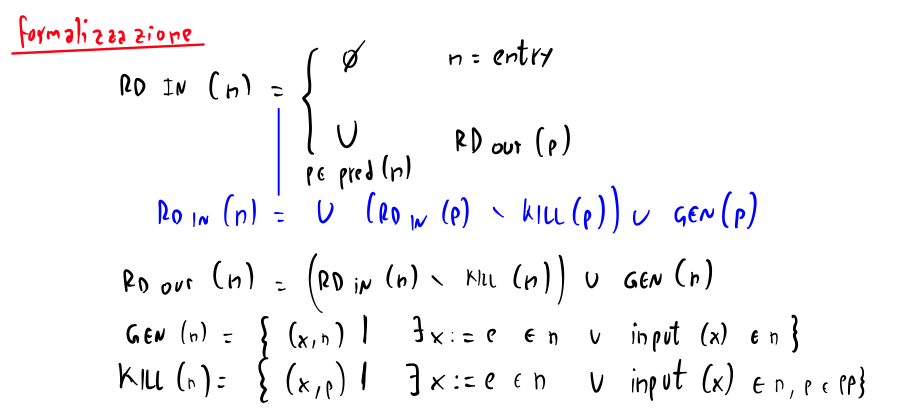 formalizzazione
RD IN (n) = { ∅ n = entry
∪ RD OUT (p)
p ∈ pred (n)
RD IN (n) = ∪ (RD IN (p) \ KILL (p)) ∪ GEN (p)
RD OUT (n) = (RD IN (n) \ KILL (n)) ∪ GEN (n)
GEN (n) = { (x,n) | ∃ x := e ∈ n ∪ input (x) ∈ n }
KILL (n) = { (x,p) | ∃ x := e ∈ n ∪ input (x) ∈ n, p ∈ PP }